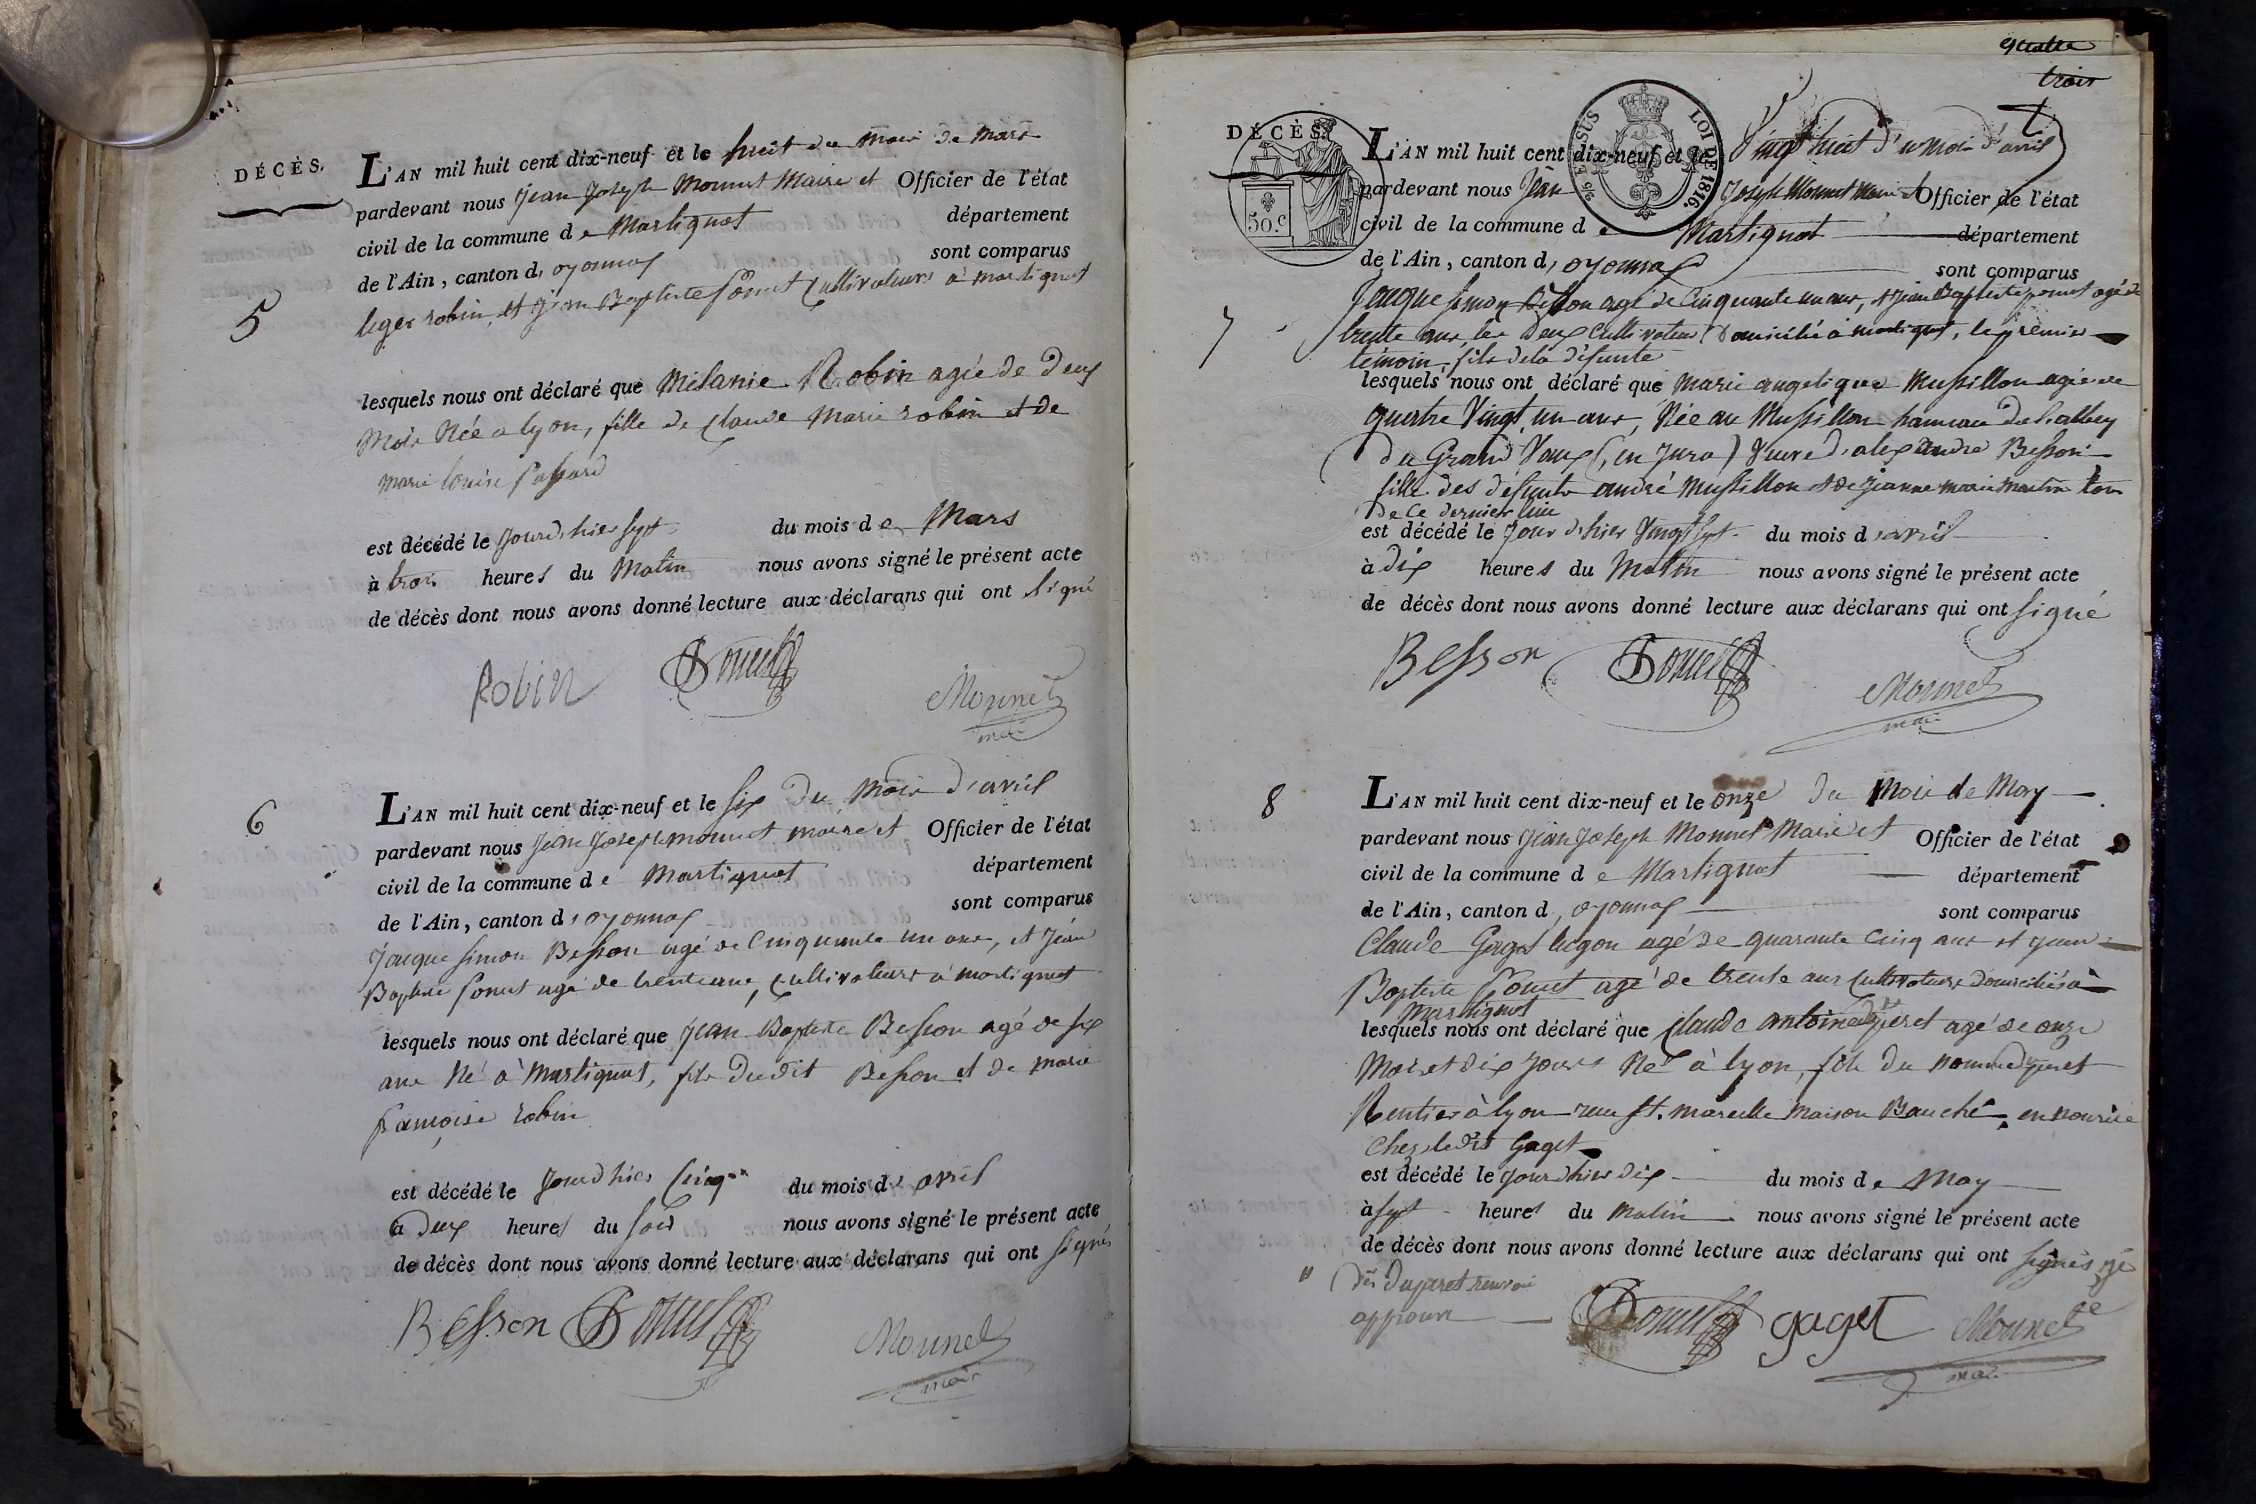 DÉCÈS.
L'AN mil huit cent dix-neuf et le huit du mois de Mars
pardevant nous jean Joseph Monnet Maire et Officier de l'état
civil de la commune d e Martignat département
de l'Ain, canton d, oyonnax sont comparus
5
leger robin, et jean Baptiste Ponet Cultivateurs à martignat
lesquels nous ont déclaré que Mélanie Robin agée de deux
Mois Née a lyon, fille de claude Marie robin et de
marie louise
est décédé le jourd,hier sept du mois d e Mars
à trois heures du Matin nous avons signé le présent acte
de décès dont nous avons donné lecture aux déclarans qui ont signé
Robin Ponet Monnet
maire
6
L'AN mil huit cent dix-neuf et le six du mois d'avril
pardevant nous jean joseph monnet maire et Officier de l'état
civil de la commune d e Martignat département
de l'Ain, canton d, oyonnax sont comparus
Jacque simon Besson agé de Cinquante un ans, et Jean
Baptiste Ponet agé de trente ans, Cultivateurs à martignat
lesquels nous ont déclaré que jean Baptiste Besson agé de six
ans Né à Martignat, fils dudit Besson et de marie
françoise robin
est décédé le jourd'hier Cinq du mois d' avril
à deux heures du soir nous avons signé le présent acte
de décès dont nous avons donné lecture aux déclarans qui ont signés
Besson Ponet Monnet
maire
quatre
trois
DÉCÈS.
50.c
2/6 EN SUS LOI DE 1816.
L'AN mil huit cent dix-neuf et le Vingt huit d'u mois d'avril
pardevant nous Jean Joseph Monnet Maire et Officier de l'état
civil de la commune d e Martignat département
de l'Ain, canton d, oyonnax sont comparus
7
Jacque simon Besson agé de Cinquante un ans, et jean Baptiste ponet agé de
trente ans, les deux Cultivateurs domiciliés à martignat, le premier
témoin, fils de la défunte
lesquels nous ont déclaré que Marie angelique Mussillon agée de
quatre Vingt un ans, Née au Mussillon hameau de l'abbey
du Grand Vaux (, en Jura) Veuve d, alexandre Besson
fille des défunts andré Mussillon et de jeanne marie martin
de ce dernier lieu
est décédé le jour d'hier Vingt sept du mois d'avril
à dix heures du Matin nous avons signé le présent acte
de décès dont nous avons donné lecture aux déclarans qui ont signé
Besson Ponet Monnet
maire
8
L'AN mil huit cent dix-neuf et le onze du Mois de May
pardevant nous jean joseph Monnet Maire et Officier de l'état
civil de la commune d e Martignat département
de l'Ain, canton d, oyonnax sont comparus
Claude Gaget agé de quarante Cinq ans et jean
Baptiste Ponet agé de trente ans Cultivateurs domiciliés à
Martignat
lesquels nous ont déclaré que Claude antoine agé de onze
Mois et dix jours Né à lyon, fils du nommé
Rentier à lyon rue St. marcelle Maison Bauché, en nourice
chez ledit Gaget
est décédé le jourd'hier dix du mois d e May
à sept heures du Matin nous avons signé le présent acte
de décès dont nous avons donné lecture aux déclarans qui ont signés
renvoi
approuvé
Ponet gaget Monnet
maire